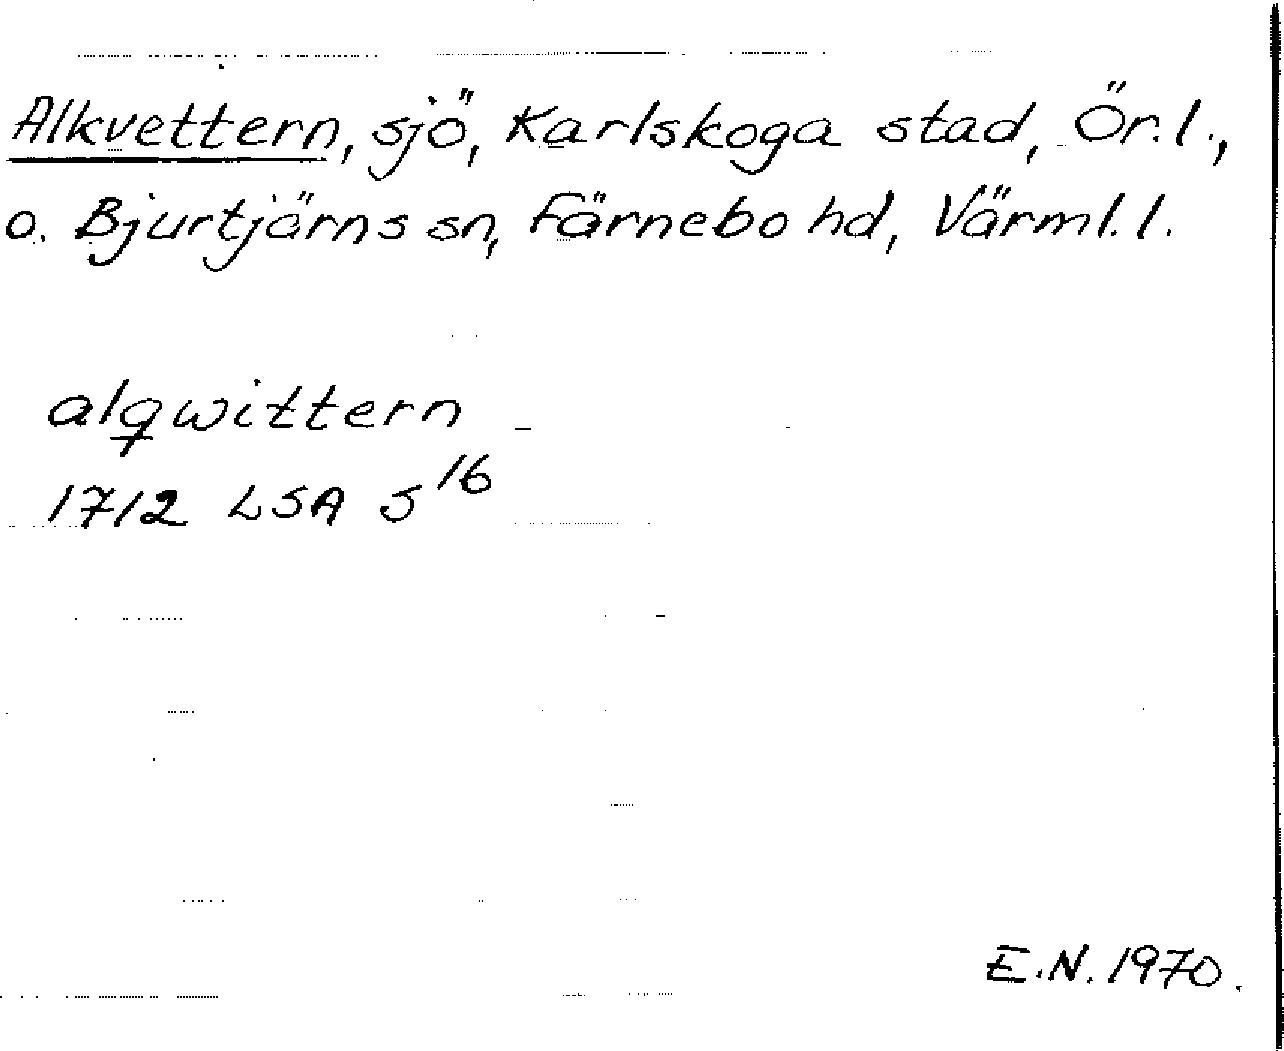 Alkvettern, sjö, Karlskoga stad, Ör.l.,
o. Bjurtjärns sn, Färnebo hd, Värml.l.
alqwittern
1712 LSA S¹⁶
E.N. 1970.